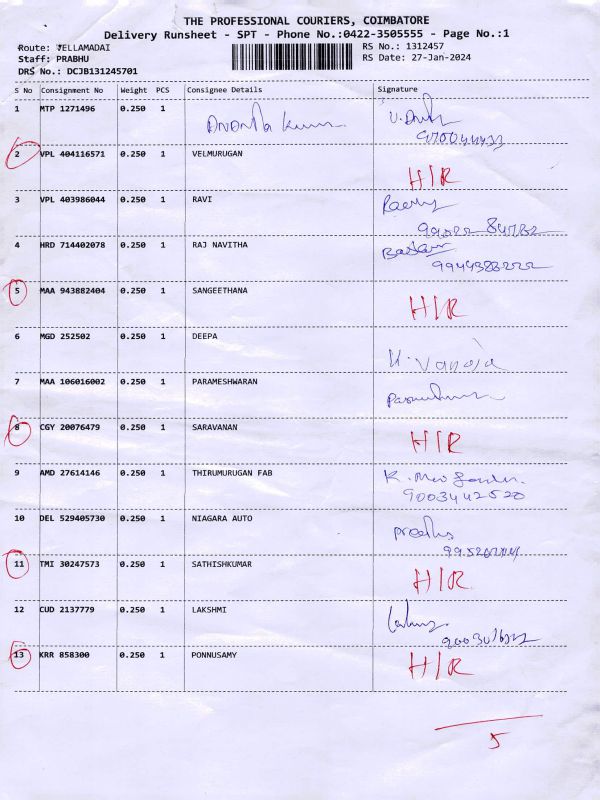 THE PROFESSIONAL COURIERS, COIMBATORE
Delivery Runsheet - SPT - Phone No.:0422-3505555 - Page No.:1
Route: VELLAMADAI RS No.: 1312457
Staff: PRABHU RS Date: 27-Jan-2024
DRS No.: DCJB131245701
S No Consignment No Weight PCS Consignee Details Signature
1 MTP 1271496 0.250 1
2 VPL 404116571 0.250 1 VELMURUGAN H/R
3 VPL 403986044 0.250 1 RAVI
4 HRD 714402078 0.250 1 RAJ NAVITHA
9944388222
5 MAA 943882404 0.250 1 SANGEETHANA H/R
6 MGD 252502 0.250 1 DEEPA K. Vanaja
7 MAA 106016002 0.250 1 PARAMESHWARAN
8 CGY 20076479 0.250 1 SARAVANAN H/R
9 AMD 27614146 0.250 1 THIRUMURUGAN FAB
9003442520
10 DEL 529405730 0.250 1 NIAGARA AUTO
11 TMI 30247573 0.250 1 SATHISHKUMAR H/R
12 CUD 2137779 0.250 1 LAKSHMI
13 KRR 858300 0.250 1 PONNUSAMY H/R
5